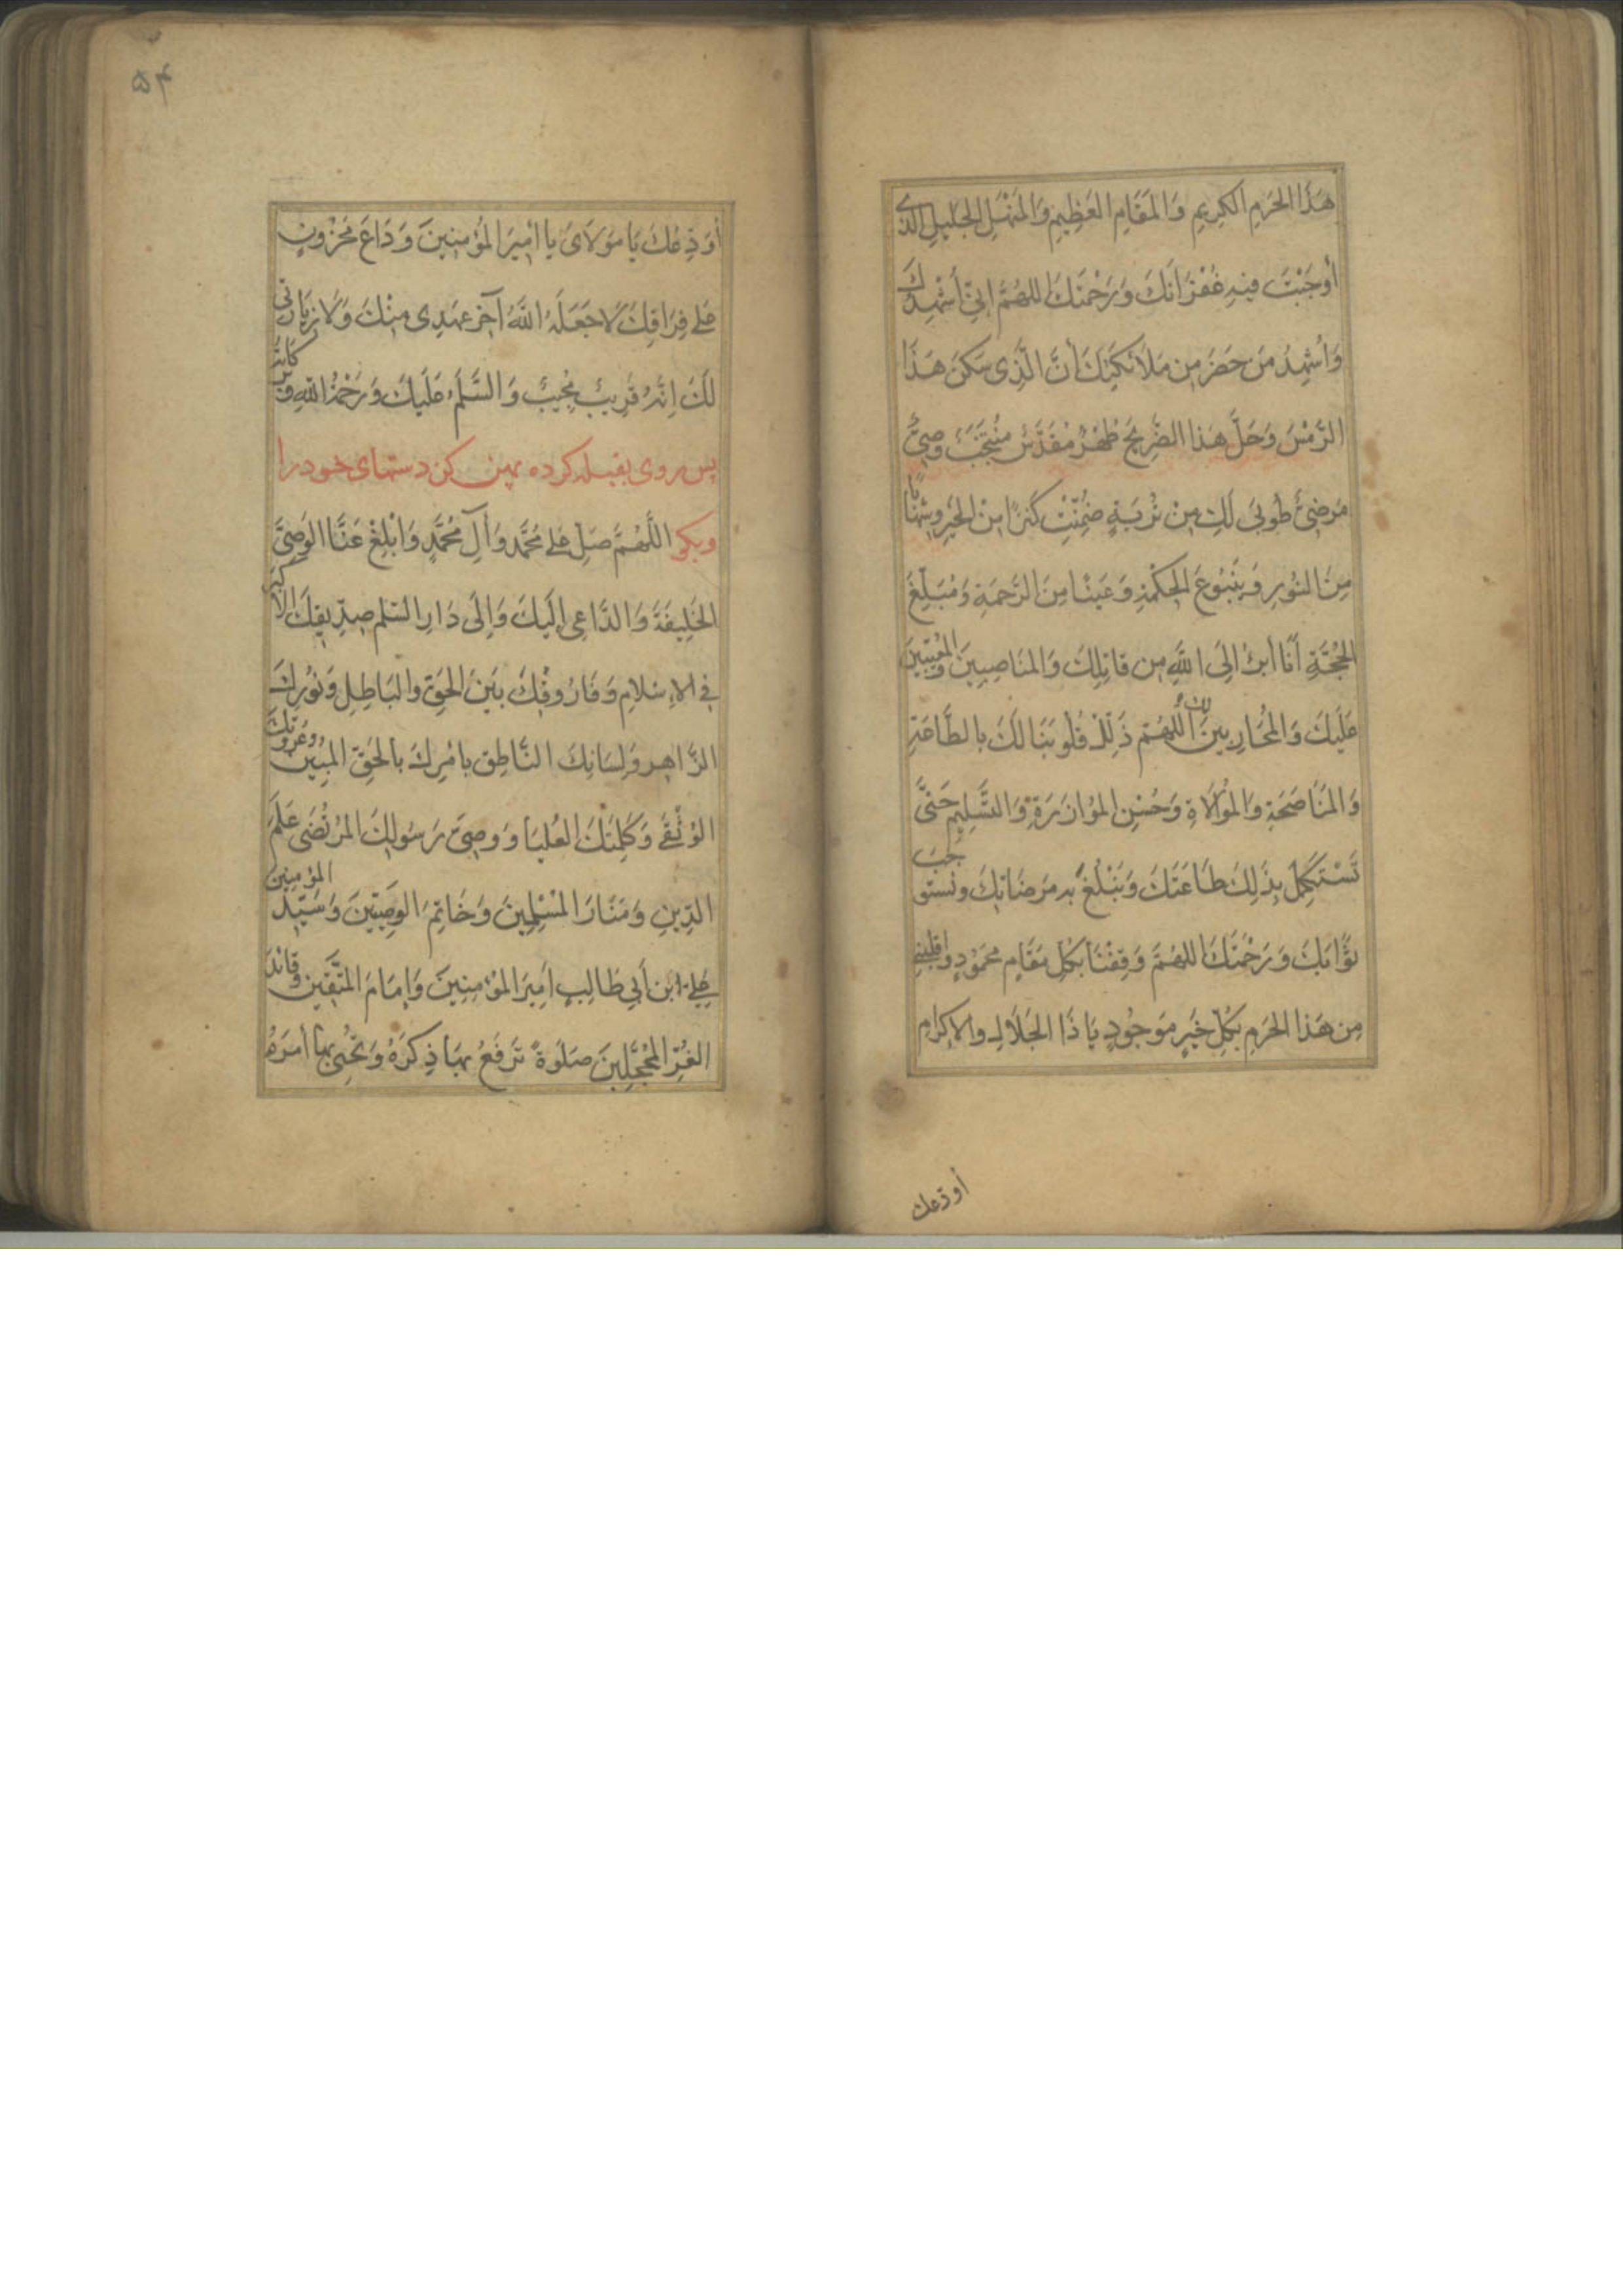 هَذَا الحَرَمِ الكَرِيمِ وَالمَقَامِ العَظِيمِ وَالمَنْهَلِ الجَلِيلِ الَّذِي
أَوْجَبْتَ فِيهِ غُفْرَانَكَ وَرَحْمَتَكَ اللهُمَّ إِنِّي أُشْهِدُكَ
وَأُشْهِدُ مَن حَضَرَ مِن مَلَائِكَتِكَ أَنَّ الَّذِي سَكَنَ هَذَا
الرَّمْسَ وَحَلَّ هَذَا الضَّرِيحَ طُهْرٌ مُقَدَّسٌ مُنْتَجَبٌ وَصِيٌّ
مَرضِيٌّ طُوبَى لَكِ مِنْ تُرْبَةٍ ضُمِّنَتْ كَنْزًا مِنَ الخَيْرِ وَشِهَابًا
مِنَ النُّورِ وَيَنْبُوعَ الحِكْمَةِ وَعَيْنًا مِنَ الرَّحْمَةِ وَمُبَلِّغَ
الحُجَّةِ أَنَا أَبْرَأُ إِلَى اللَّهِ مِن قَاتِلِكَ وَالنَاصِبِينَ وَالمُعِينِينَ
عَلَيْكَ وَالمُحَارِبِينَ لَكَ اللهُمَّ ذَلِّلْ قُلُوبَنَا لَكَ بِالطَّاعَةِ
وَالمُنَاصَحَةِ وَالمُوَالَاةِ وَحُسْنِ المُوَازَرَةِ وَالتَّسْلِيمِ حَتَّى
نَسْتَكْمِلَ بِذَلِكَ طَاعَتَكَ وَنَبْلُغَ بِهِ مَرضَاتِكَ وَنَسْتَوجِبَ
ثَوَابَكَ وَرَحْمَتَكَ اللهُمَّ وَفِّقْنَا لِكُلِّ مَقَامٍ مَحْمُودٍ وَاقْلِبْنِي
مِن هَذَا الحَرَمِ بِكُلِّ خَيْرٍ مَوْجُودٍ يَا ذَا الجَلَالِ وَالإِكْرَامِ
أودّعك
۴۵
أُوَدِّعُكَ يَا مَوْلَايَ يَا أَمِيرَ المُؤْمِنِينَ وَدَاعَ مَحْزُونٍ
عَلَى فِرَاقِكَ لَا جَعَلَهُ اللَّهُ آخِرَ عَهْدِي مِنْكَ وَلَا زِيَارَتِي
لَكَ إِنَّهُ قَرِيبٌ مُجِيبٌ وَالسَّلَامُ عَلَيْكَ وَرَحْمَةُ اللَّهِ وَبَرَكَاتُهُ
پس روی بقبله کرده پهن کن دستهای خود را
وبکو اللَّهُمَّ صَلِّ عَلَى مُحَمَّدٍ وَآلِ مُحَمَّدٍ وَأَبْلِغْ عَنَّا الوَصِيَّ
الخَلِيفَةَ وَالدَّاعِيَ إِلَيْكَ وَإِلَى دَارِ السَّلَمِ صِدِّيقِكَ الأَكْبَرِ
فِي الإِسْلَامِ وَفَارُوقِكَ بَيْنَ الحَقِّ وَالبَاطِلِ وَنُورِكَ
الزَّاهِرِ وَلِسَانِكَ النَّاطِقِ بِأَمْرِكَ بِالحَقِّ المُبِينِ وَعُرْوَتِكَ
الوُثْقَى وَكَلِمَتِكَ العُلْيَا وَوَصِيِّ رَسُولِكَ المُرْتَضَى عَلَمَ
الدِّينِ وَمَنَارَ المُسْلِمِينَ وَخَاتِمَ الوَصِيِّينَ وَسَيِّدَ المُؤْمِنِينَ
عَلِيِّ ابْنِ أَبِي طَالِبٍ أَمِيرَ المُؤْمِنِينَ وَإِمَامَ المُتَّقِينَ وَقَائِدَ
الغُرِّ المُحَجَّلِينَ صَلَوٰةً تَرْفَعُ بِهَا ذِكْرَهُ وَتُحْيِي بِهَا أَمْرَهُ